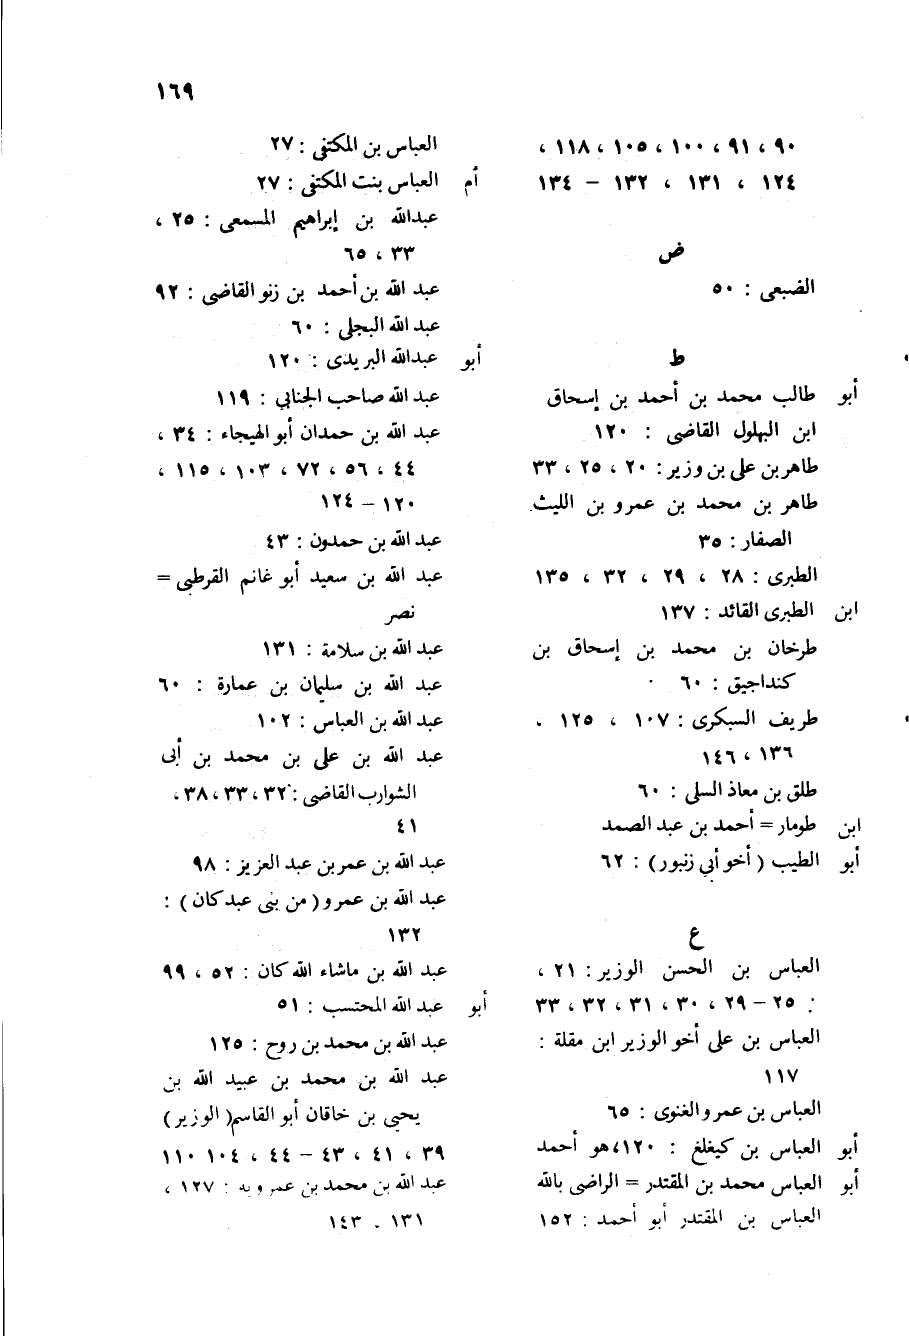 ١٦٩
٩٠ ، ٩١ ، ١٠٠ ، ١٠٥ ، ١١٨ ،
١٢٤ ، ١٣١ ، ١٣٢ – ١٣٤
ض
الضبعى : ٥٠
ط
أبو طالب محمد بن أحمد بن إسحاق
ابن البهلول القاضى : ١٢٠
طاهر بن على بن وزير : ٢٠ ، ٢٥ ، ٣٣
طاهر بن محمد بن عمرو بن الليث
الصفار : ٣٥
الطبرى : ٢٨ ، ٢٩ ، ٣٢ ، ١٣٥
ابن الطبرى القائد : ١٣٧
طرخان بن محمد بن إسحاق بن
كنداجيق : ٦٠
طريف السبكرى : ١٠٧ ، ١٢٥ .
١٣٦ ، ١٤٦
طلق بن معاذ السلى : ٦٠
ابن طومار = أحمد بن عبد الصمد
أبو الطيب ( أخو أبي زنبور ) : ٦٢
ع
العباس بن الحسن الوزير : ٢١ ،
٢٥ – ٢٩ ، ٣٠ ، ٣١ ، ٣٢ ، ٣٣ :
العباس بن على أخو الوزير ابن مقلة :
١١٧
العباس بن عمرو الغنوى : ٦٥
أبو العباس بن كيغلغ : ١٢٠، هو أحمد
أبو العباس محمد بن المقتدر = الراضى بالله
العباس بن المقتدر أبو أحمد : ١٥٢
العباس بن المكتفى : ٢٧
أم العباس بنت المكتفى : ٢٧
عبدالله بن إبراهيم المسمعى : ٢٥ ،
٣٣ ، ٦٥
عبد الله بن أحمد بن زنو القاضى : ٩٢
عبد الله البجلى : ٦٠
أبو عبدالله البريدى : ١٢٠
عبد الله صاحب الجنابي : ١١٩
عبد الله بن حمدان أبو الهيجاء : ٣٤ ،
٤٤ ، ٥٦ ، ٧٢ ، ١٠٣ ، ١١٥ ،
١٢٠ – ١٢٤
عبد الله بن حمدون : ٤٣
عبد الله بن سعيد أبو غانم القرطبى =
نصر
عبد الله بن سلامة : ١٣١
عبد الله بن سليمان بن عمارة : ٦٠
عبد الله بن العباس : ١٠٢
عبد الله بن على بن محمد بن أبى
الشوارب القاضى : ٣٢ ، ٣٣ ، ٣٨ ،
٤١
عبد الله بن عمر بن عبد العزيز : ٩٨
عبد الله بن عمرو ( من بنى عبد كان ) :
١٣٢
عبد الله بن ماشاء الله كان : ٥٢ ، ٩٩
أبو عبد الله المحتسب : ٥١
عبد الله بن محمد بن روح : ١٢٥
عبد الله بن محمد بن عبيد الله بن
يحيى بن خاقان أبو القاسم ( الوزير )
٣٩ ، ٤١ ، ٤٣ – ٤٤ ، ١٠٤ ١١٠
عبد الله بن محمد بن عمرويه : ١٢٧ ،
١٣١ . ١٤٣